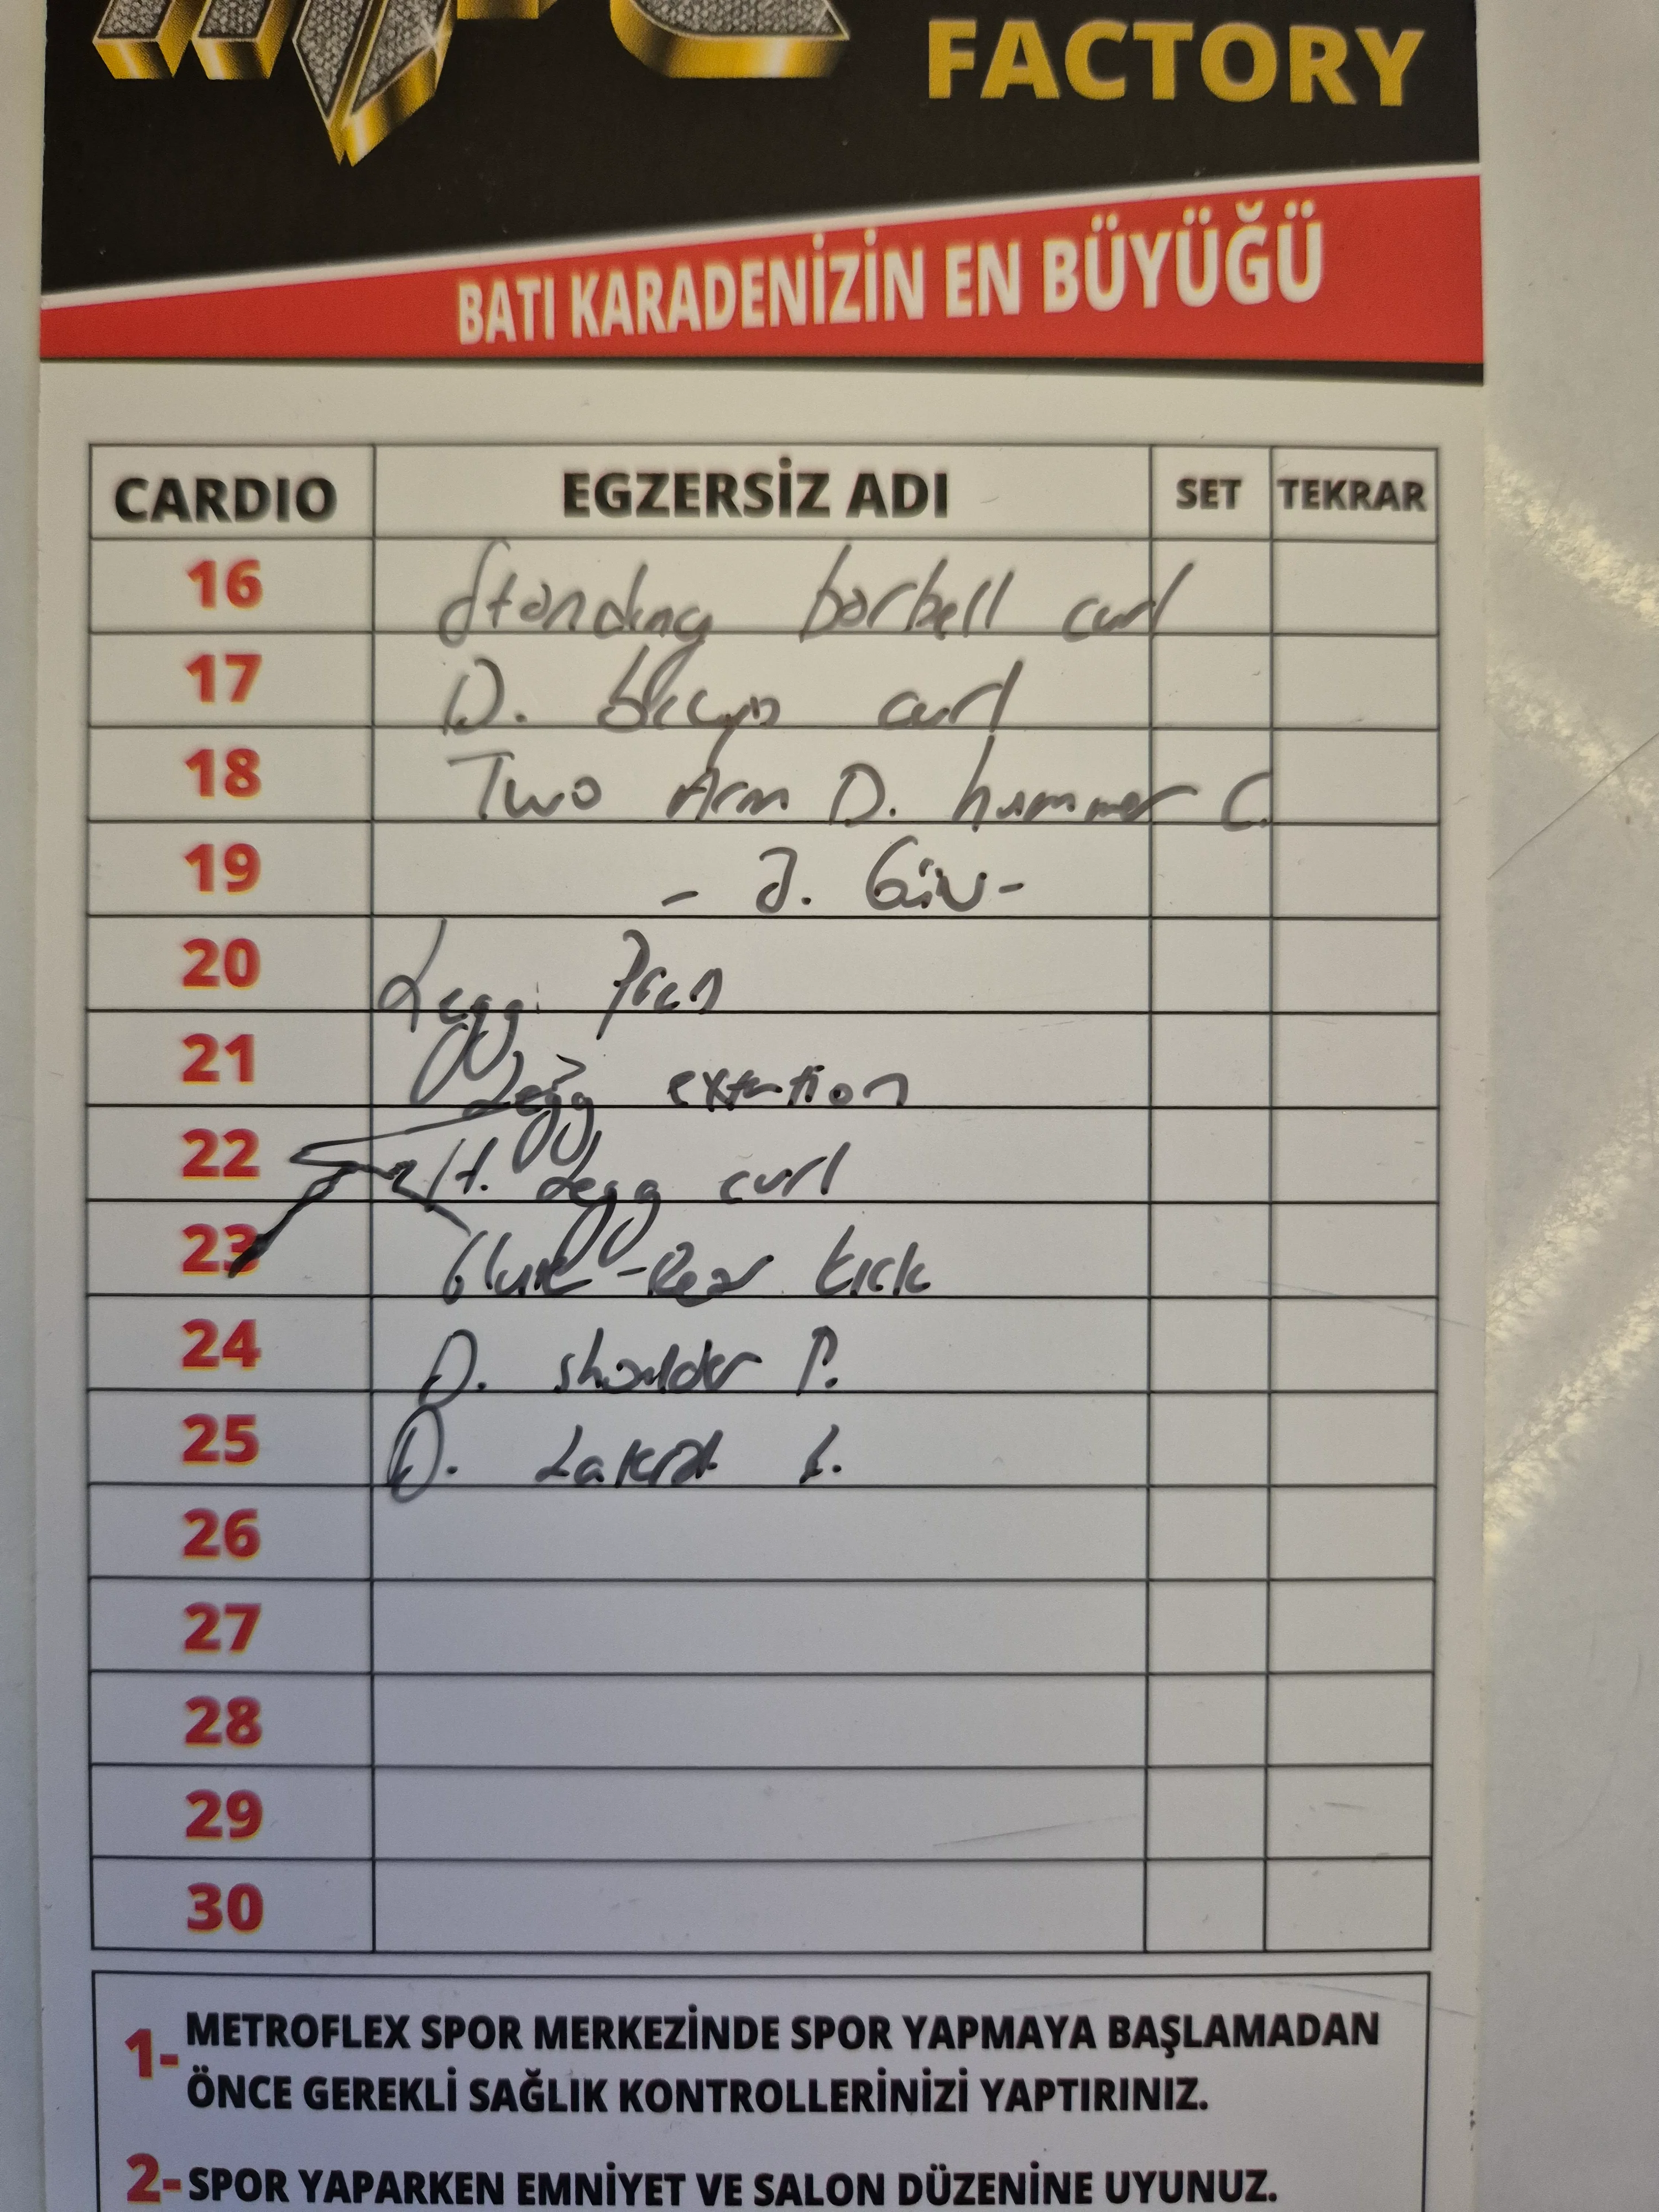 FACTORY
BATI KARADENİZİN EN BÜYÜĞÜ
CARDIO EGZERSİZ ADI SET TEKRAR
16 Standing barbell curl
17 D. curl
18 Two Arm D. hummer C.
19 - 3. Gün -
20 Legg Press
21 Legg extention
22 Legg curl
23 Glute - Rear kick
24 D. shoulder P.
25 D. Lateral L.
26
27
28
29
30
1- METROFLEX SPOR MERKEZİNDE SPOR YAPMAYA BAŞLAMADAN
ÖNCE GEREKLİ SAĞLIK KONTROLLERİNİZİ YAPTIRINIZ.
2- SPOR YAPARKEN EMNİYET VE SALON DÜZENİNE UYUNUZ.